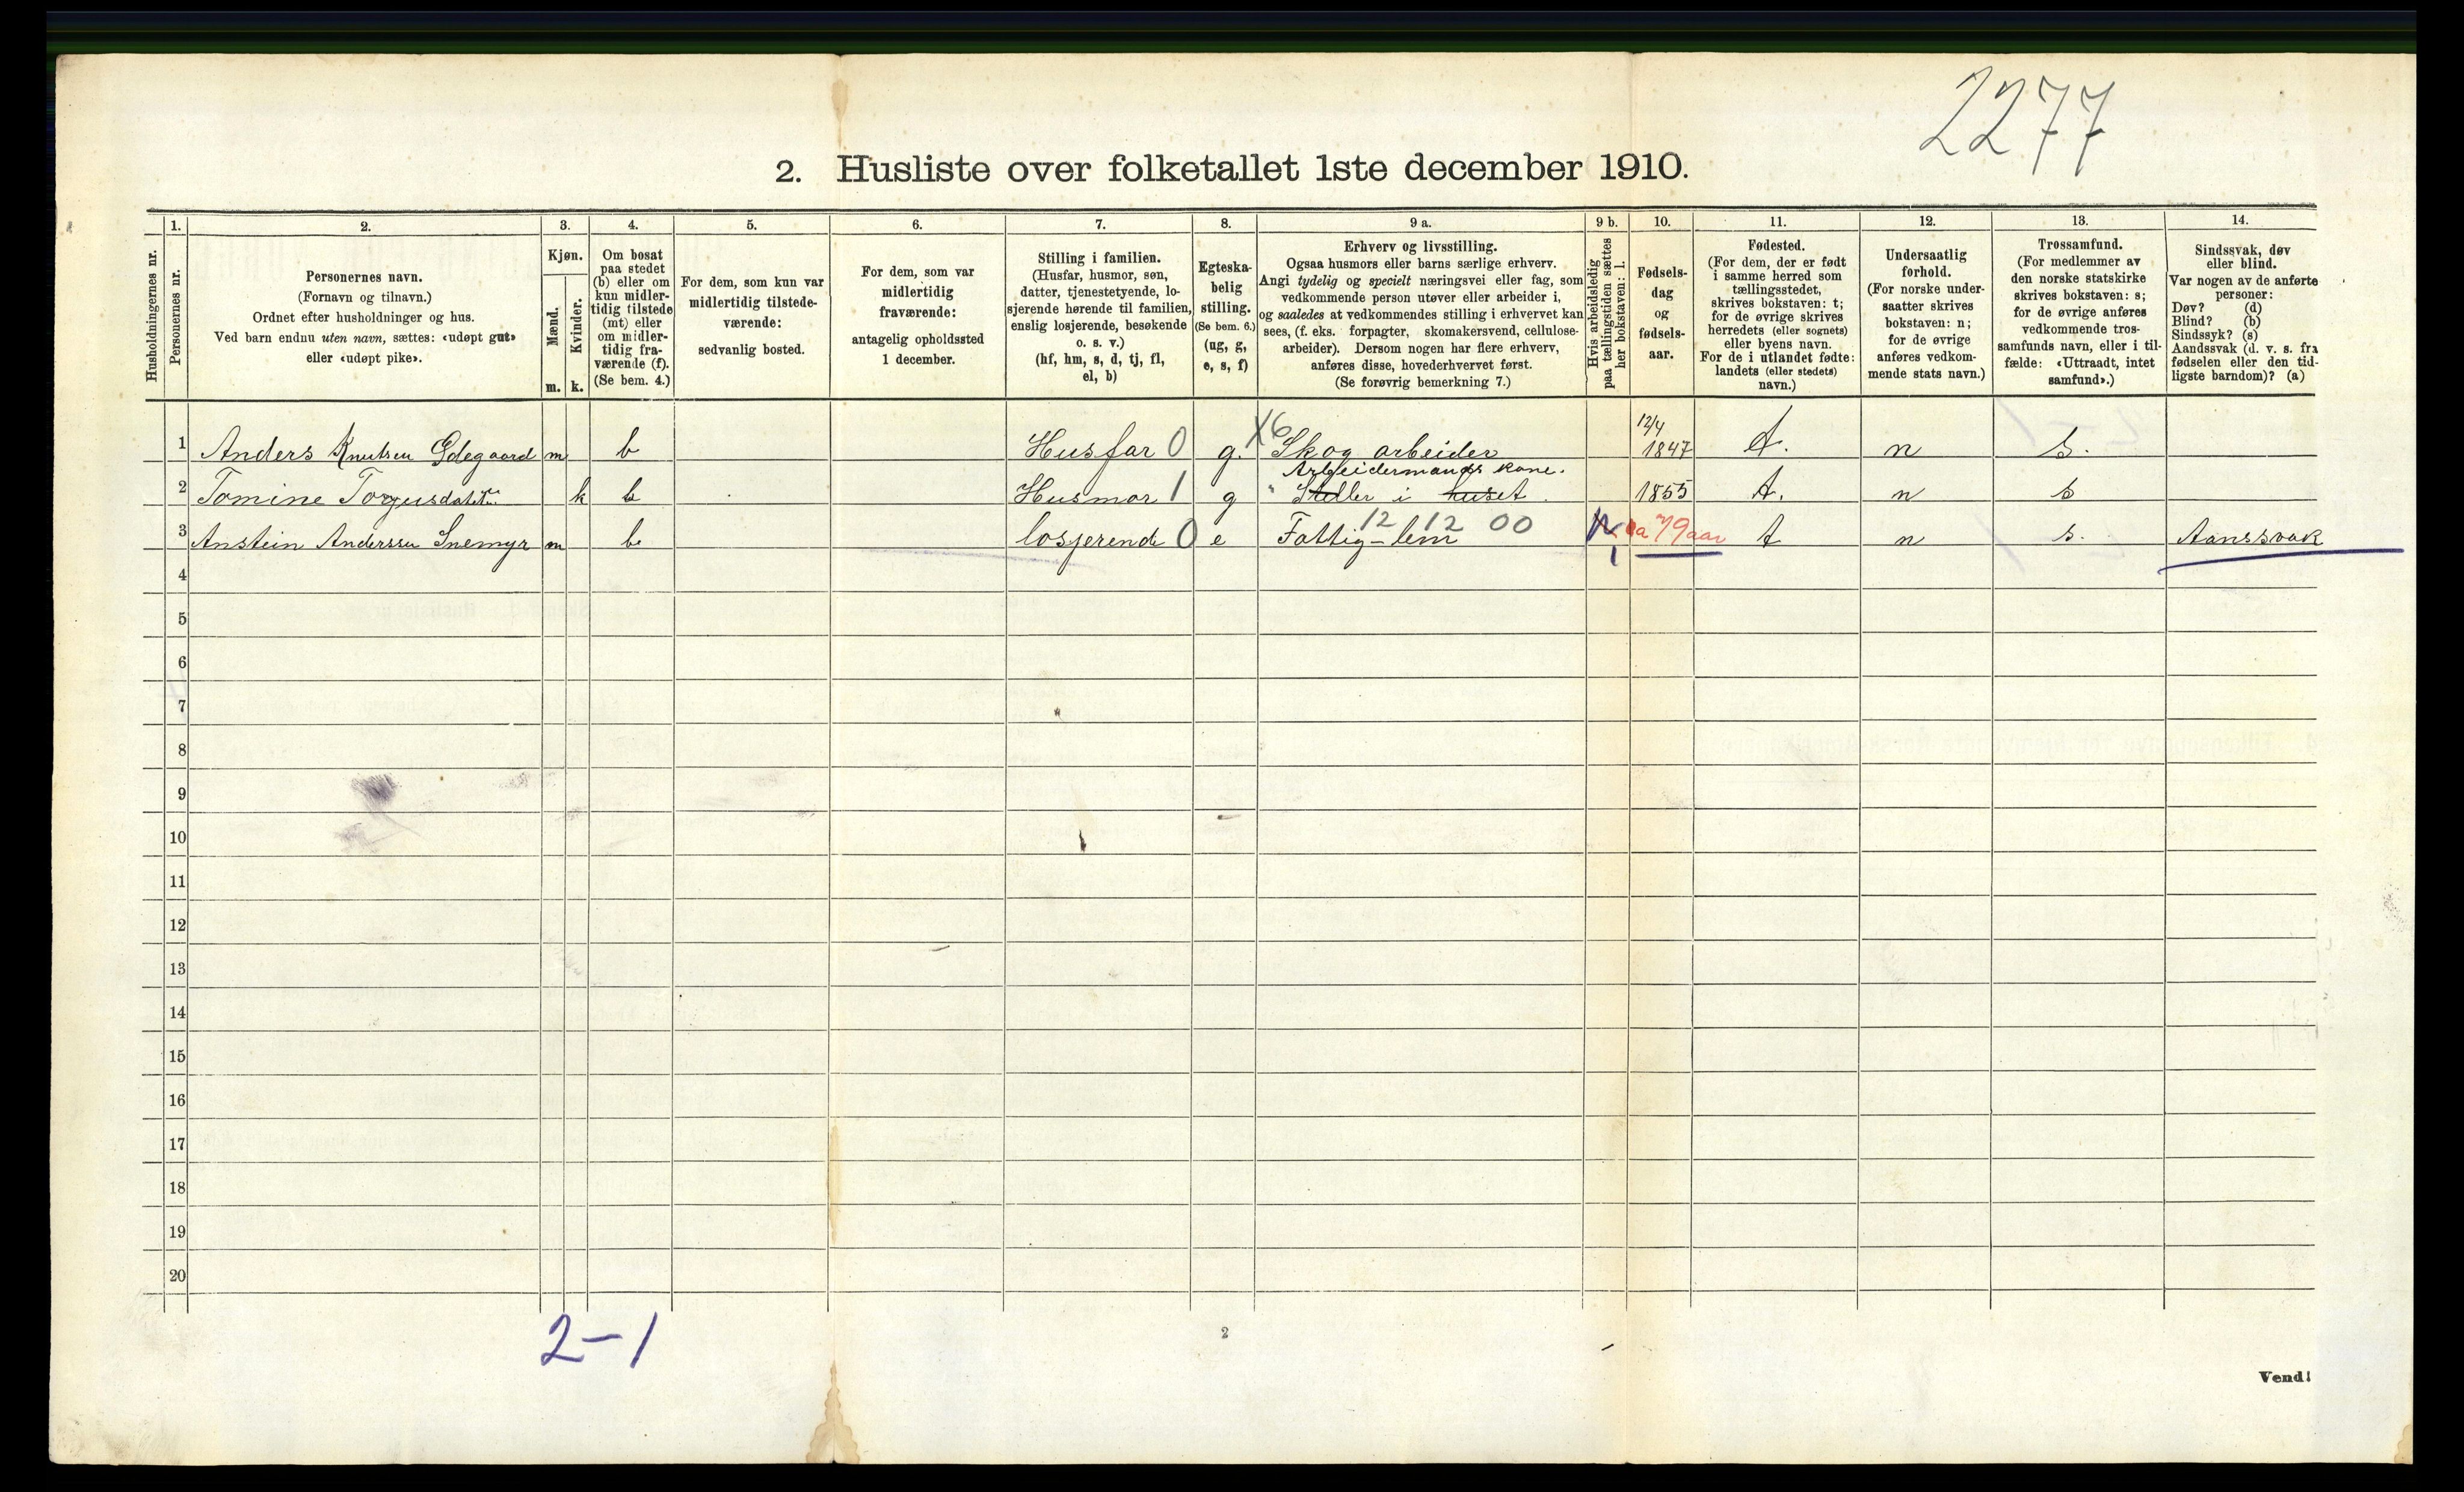 2277
2. Husliste over folketallet 1ste december 1910.
Husholdningernes nr.
1.
Personernes nr.
2.
Personernes navn.
(Fornavn og tilnavn.)
Ordnet efter husholdninger og hus.
Ved barn endnu uten navn, sættes: «udøpt gut»
eller «udøpt pike».
3.
Kjøn.
Mænd.
Kvinder.
m.
k.
4.
Om bosat
paa stedet
(b) eller om
kun midler-
tidig tilstede
(mt) eller
om midler-
tidig fra-
værende (f).
(Se bem. 4.)
5.
For dem, som kun var
midlertidig tilstede-
værende:
sedvanlig bosted.
6.
For dem, som var
midlertidig
fraværende:
antagelig opholdssted
1 december.
7.
Stilling i familien.
(Husfar, husmor, søn,
datter, tjenestetyende, lo-
sjerende hørende til familien,
enslig losjerende, besøkende
o. s. v.)
(hf, hm, s, d, tj, fl,
el, b)
8.
Egteska-
belig
stilling.
(Se bem. 6.)
(ug, g,
e, s, f)
9 a.
Erhverv og livsstilling.
Ogsaa husmors eller barns særlige erhverv.
Angi tydelig og specielt næringsvei eller fag, som
vedkommende person utøver eller arbeider i,
og saaledes at vedkommendes stilling i erhvervet kan
sees, (f. eks. forpagter, skomakersvend, cellulose-
arbeider). Dersom nogen har flere erhverv,
anføres disse, hovederhvervet først.
(Se forøvrig bemerkning 7.)
9 b.
Hvis arbeidsledig
paa tællingstiden sættes
her bokstaven: l.
10.
Fødsels-
dag
og
fødsels-
aar.
11.
Fødested.
(For dem, der er født
i samme herred som
tællingsstedet,
skrives bokstaven: t;
for de øvrige skrives
herredets (eller sognets)
eller byens navn.
For de i utlandet fødte:
landets (eller stedets)
navn.)
12.
Undersaatlig
forhold.
(For norske under-
saatter skrives
bokstaven: n;
for de øvrige
anføres vedkom-
mende stats navn.)
13.
Trossamfund.
(For medlemmer av
den norske statskirke
skrives bokstaven: s;
for de øvrige anføres
vedkommende tros-
samfunds navn, eller i til-
fælde: «Uttraadt, intet
samfund».)
14.
Sindssvak, døv
eller blind.
Var nogen av de anførte
personer:
Døv? (d)
Blind? (b)
Sindssyk? (s)
Aandssvak (d. v. s. fra
fødselen eller den tid-
ligste barndom)? (a)
1 Anders Knutsen Ødegaard m b Husfar 0 g. X6 Skog arbeider 12/4 1847 t. n s.
Arbeidermands kone.
2 Tomine Torjusdatter k b Husmor 1 g " Steller i huset. 1855 t. n s
12 12 00
3 Anstein Anderssen Snemyr m b losjerende 0 e Fattig-lem ca 79 aar t n s. Aanssvak
4
5
6
7
8
9
10
11
12
13
14
15
16
17
18
19
20
2-1
2
Vend!